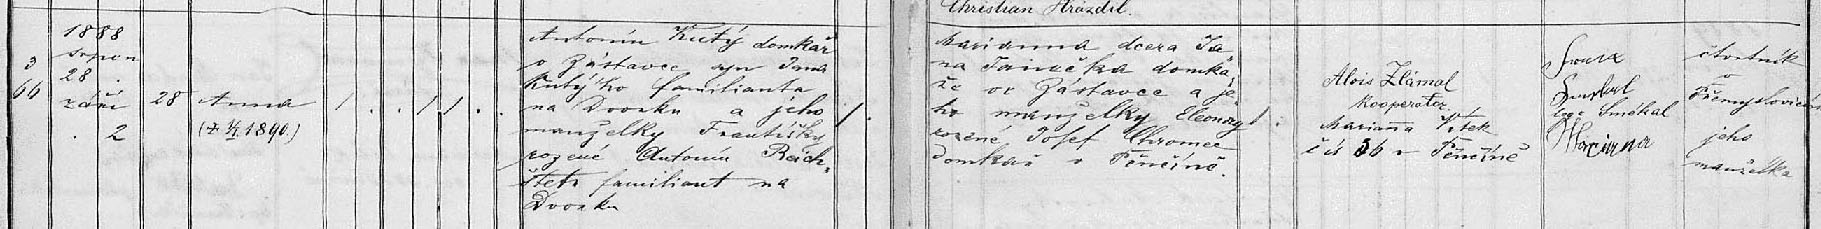 Christian Hrazdil.
3
66
1888
srpen
28.
září
. 2
28
Anna
(+ 1890.)
Antonín Kutý domkář
v Zástavce syn Jana
Kutýho familianta
na Dvorku a jeho
manželky Františky
rozené Antonín Reich-
familiant na
Dvorku
Marianna dcera Ja
na domká,
ře ve Zástavce a je-
ho manželky Eleonory
rozené Josef Chromec
domkář v Pěnčíně.
Alois Zlámal
Kooperator.
Marianna Vitek
čís 36 v Pěnčíně
Franz
Smékal
Marianna
čtvrtník
v
Přemyslovicích
jeho
manželka